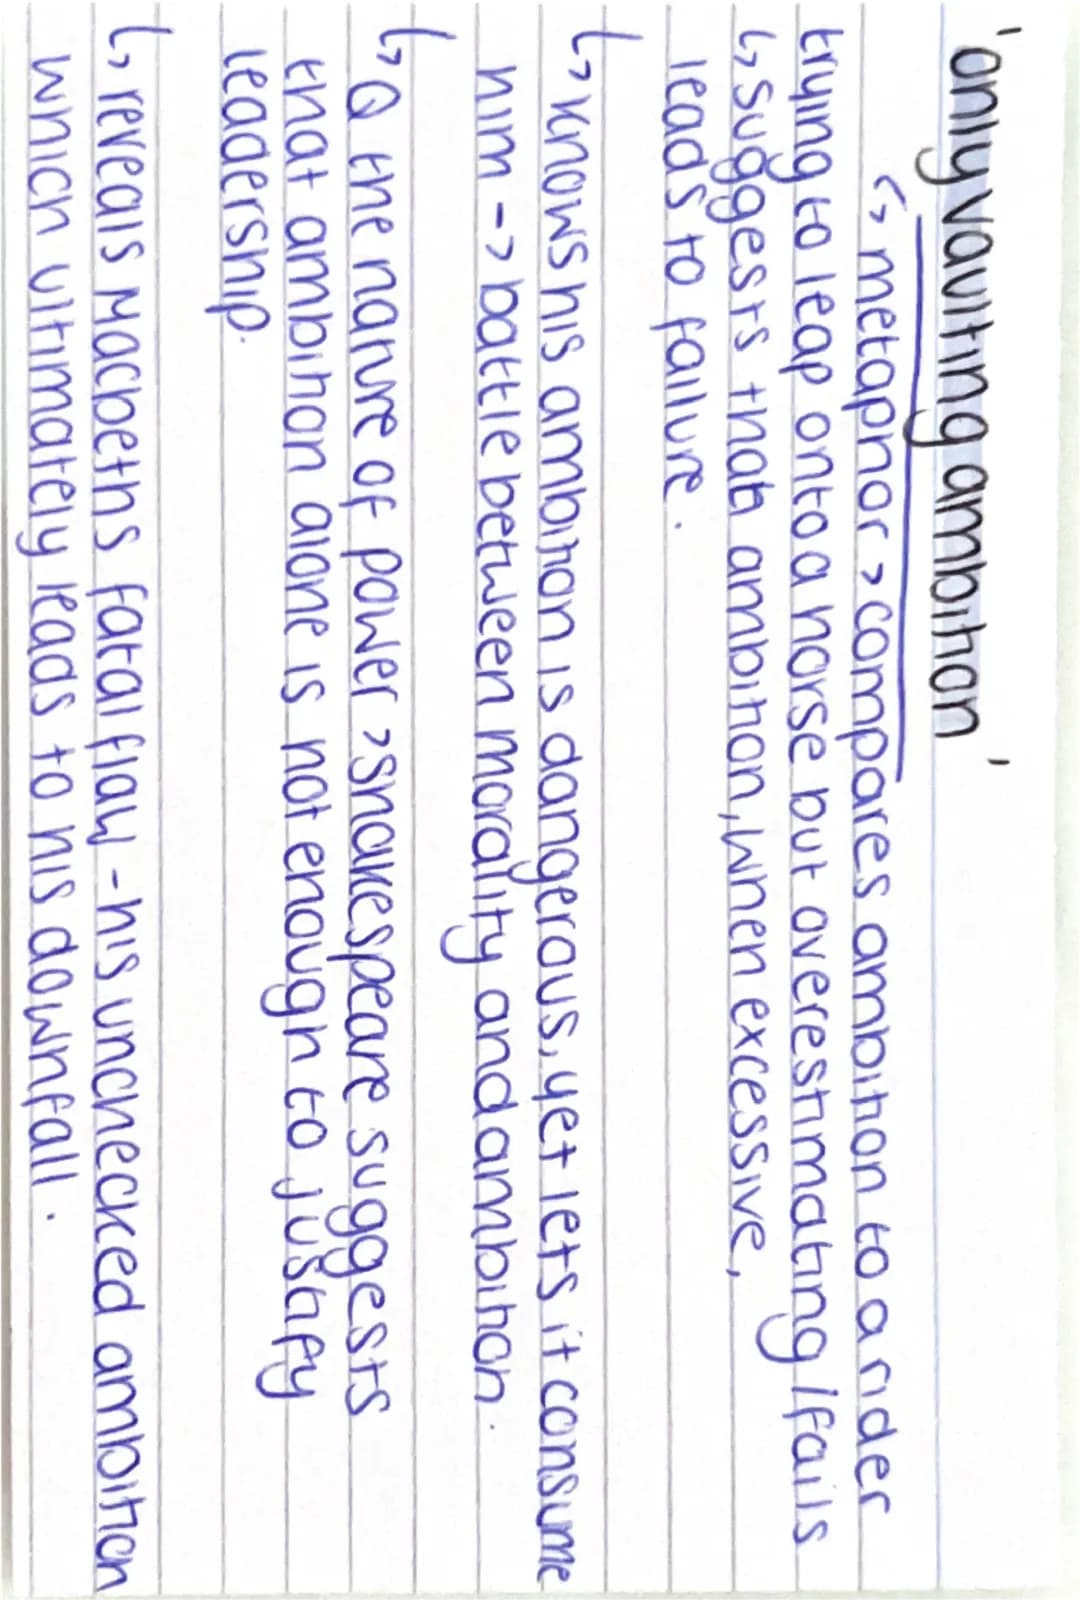 'only vaulting ambition'
↳ metaphor > compares ambition to a rider
trying to leap onto a horse but overestimating / fails
↳ suggests that ambition, when excessive,
leads to failure.
↳ knows his ambition is dangerous, yet lets it consume
him -> battle between morality and ambition.
↳ Q the nature of power > Shakespeare suggests
that ambition alone is not enough to justify
leadership.
↳ reveals Macbeths fatal flaw - his unchecked ambition
which ultimately leads to his downfall.